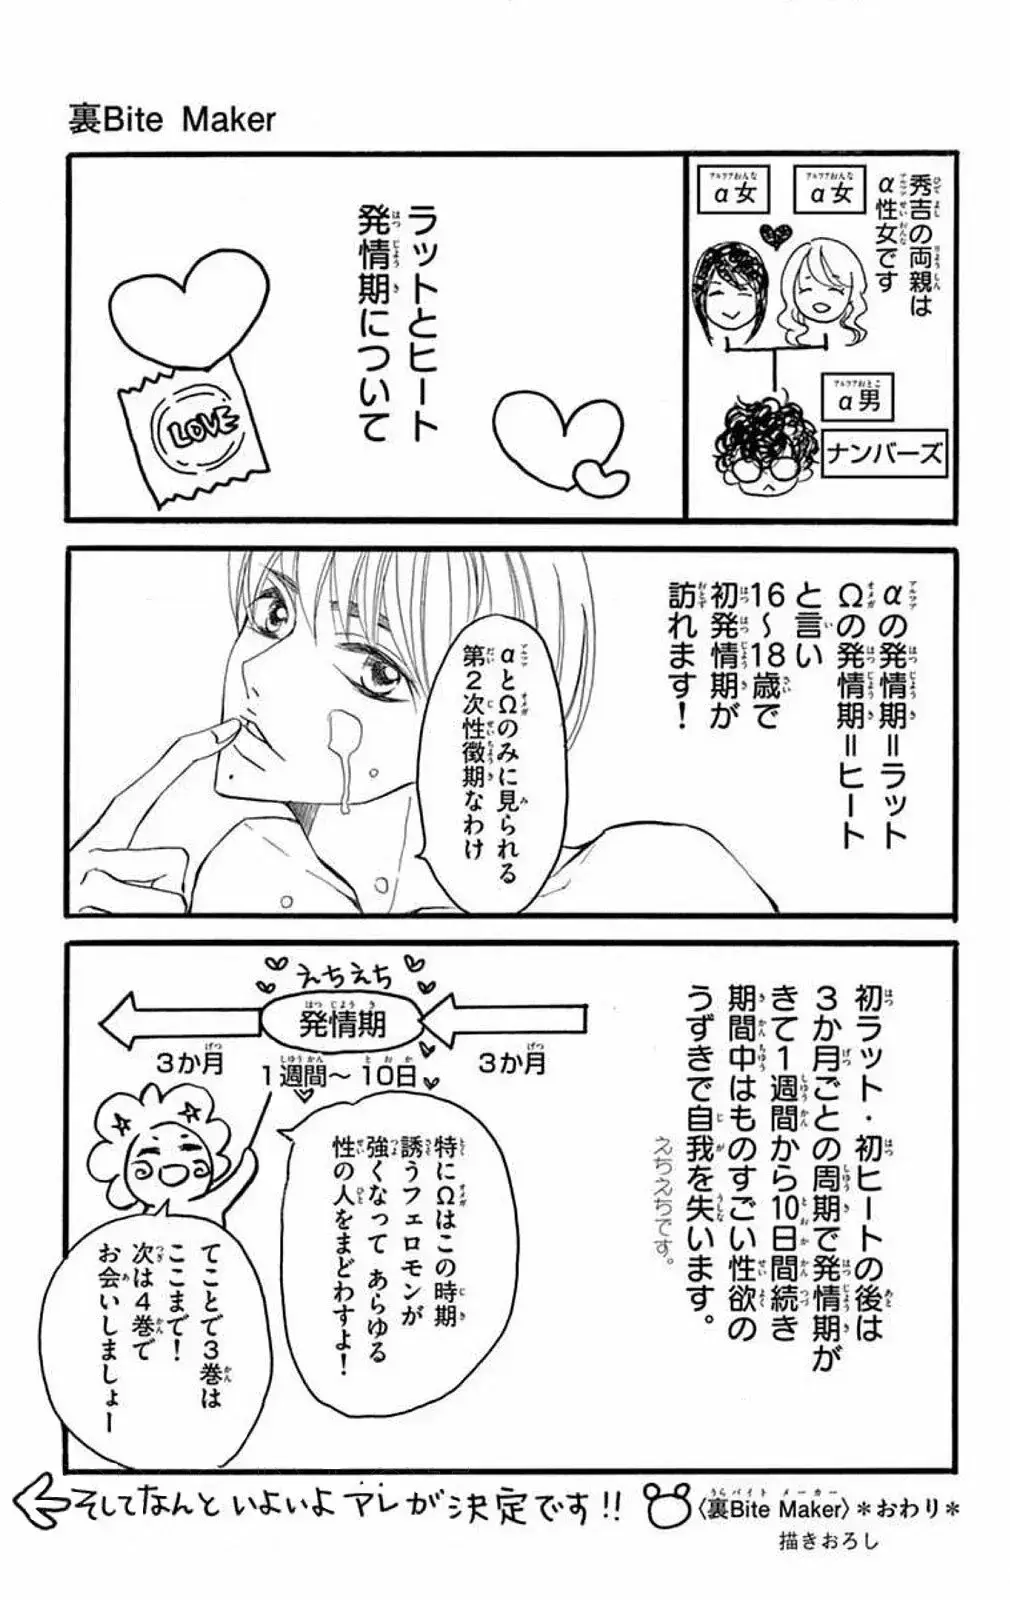 裏Bite Maker
秀吉の両親は
α性女です
α女
α女
α男
ナンバーズ
ラットとヒート
発情期について
LOVE
αの発情期＝ラット
Ωの発情期＝ヒート
と言い
16～18歳で
初発情期が
訪れます！
αとΩのみに見られる
第2次性徴期なわけ
初ラット・初ヒートの後は
3か月ごとの周期で発情期が
きて1週間から10日間続き
期間中はものすごい性欲の
うずきで自我を失います。
えちえちです。
えちえち
発情期
3か月
1週間～10日
3か月
特にΩはこの時期
誘うフェロモンが
強くなって あらゆる
性の人をまどわすよ！
てことで3巻は
ここまで！
次は4巻で
お会いしましょー
そしてなんといよいよアレが決定です!!
〈裏Bite Maker〉＊おわり＊
描きおろし